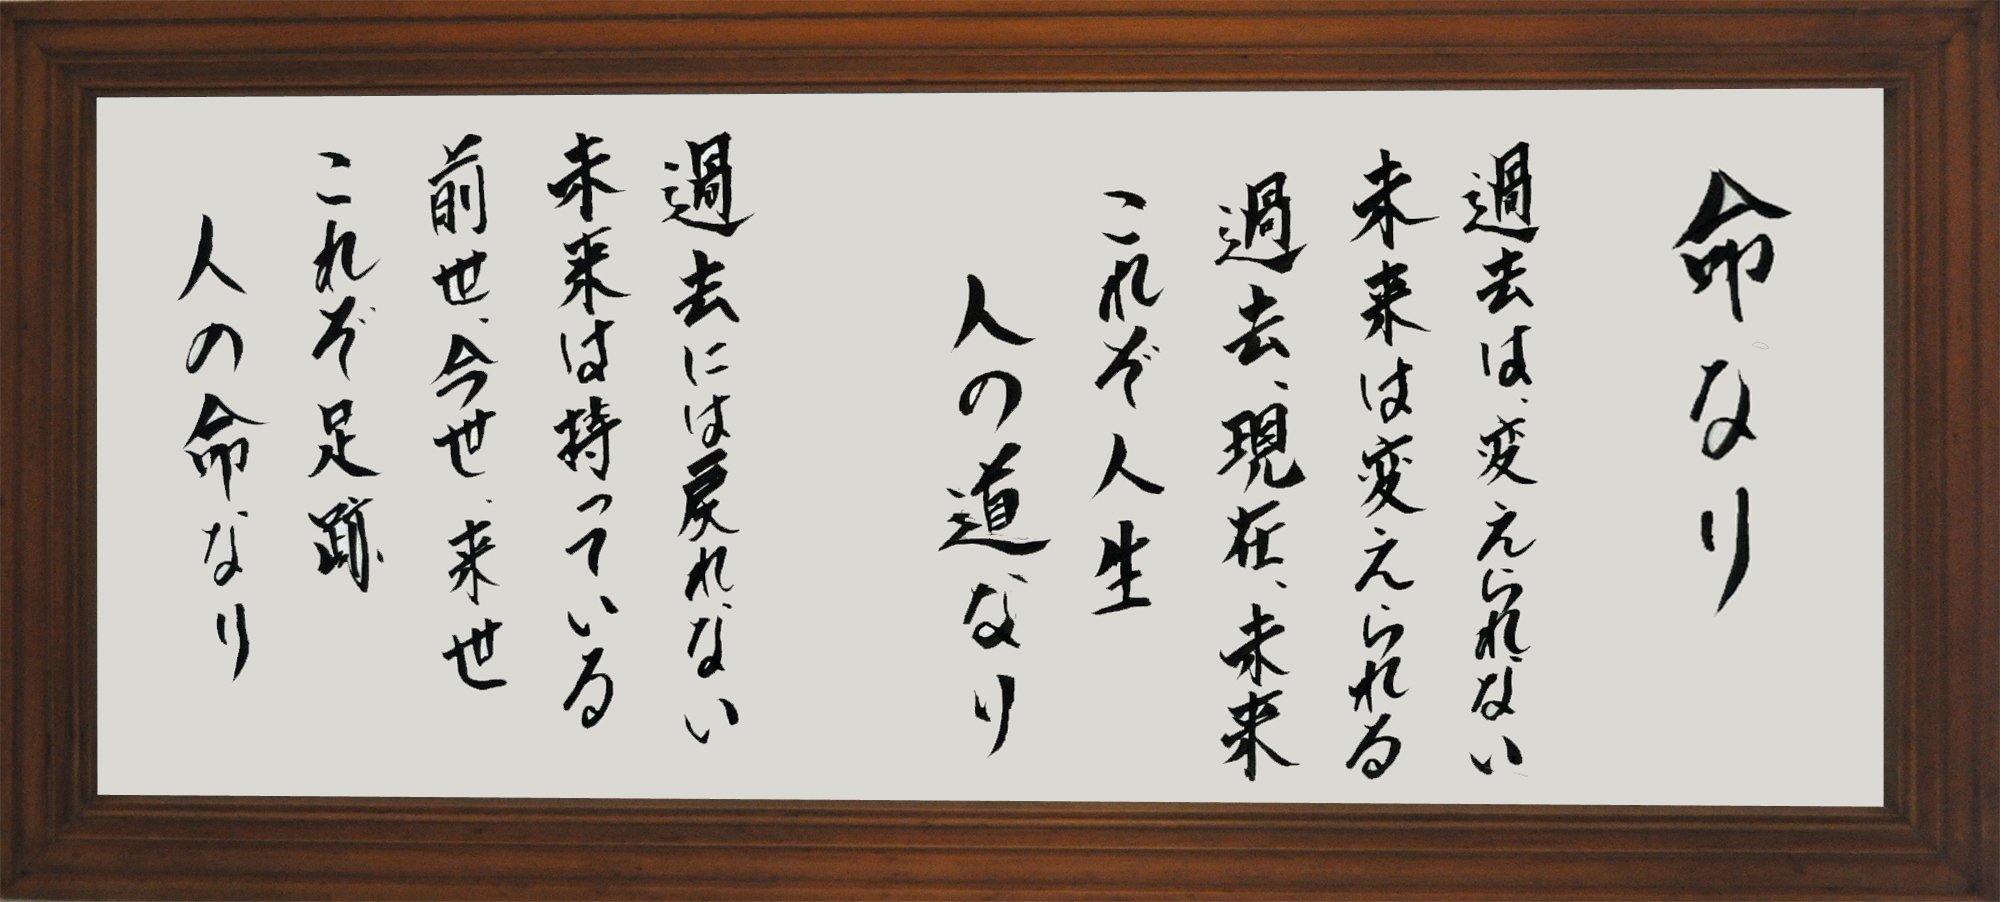 命なり
過去は、変えられない
未来は変えられる
過去、現在、未来
これぞ人生
人の道なり
過去には戻れない
未来は持っている
前世、今世、来世
これぞ足跡
人の命なり